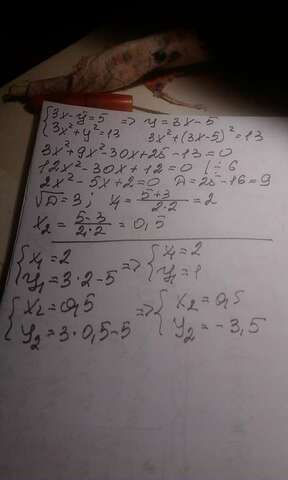 {3x-y=5 => y=3x-5
{3x²+y²=13 3x²+(3x-5)²=13
3x²+9x²-30x+25-13=0
12x²-30x+12=0 | ÷ 6
2x²-5x+2=0 D=25-16=9
√D=3; x₁=(5+3)/(2·2)=2
x₂=(5-3)/(2·2)=0,5
{x₁=2 => {x₁=2
{y₁=3·2-5 {y₁=1
{x₂=0,5 => {x₂=0,5
{y₂=3·0,5-5 {y₂=-3,5